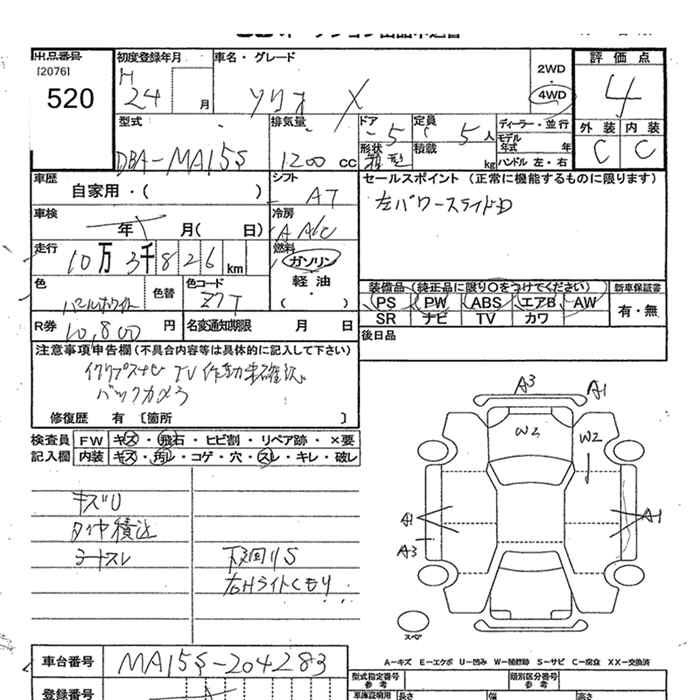 出品番号
[2076]
520
初度登録年月
H
24 月
車名・グレード
ソリオ X
2WD
4WD
評価点
4
外装 内装
C C
型式
DBA-MA15S
排気量
1200 cc
ドア
5
定員
5人
形状
箱型
積載
kg
ディーラー・並行
モデル年式 年
ハンドル 左・右
車歴
自家用・( )
シフト
AT
セールスポイント (正常に機能するものに限ります)
左パワースライドD
車検
年 月( 日)
冷房
A A/C
走行
10万 3千 826 km
燃料
ガソリン
軽油
・( )
色
パールホワイト
色替
色コード
Z7T
装備品 (純正品に限り○をつけてください)
PS PW ABS エアB AW
SR ナビ TV カワ
新車保証書
有・無
R券
10,800 円
名変通知期限 月 日
後日品
注意事項申告欄 (不具合内容等は具体的に記入して下さい)
イクリプスナビ TV作動未確認
バックカメラ
修復歴 有 〔箇所 〕
検査員 FW キズ・飛石・ヒビ割・リペア跡・×要
記入欄 内装 キズ・汚レ・コゲ・穴・スレ・キレ・破レ
キズU
タイヤ積込
シートスレ
下廻りS
右Hライトくもり
A3
A1
W2
W2
A1
A1
A3
スペア
A-キズ E-エクボ U-凹み W-補修跡 S-サビ C-腐食 XX-交換済
車台番号
MA15S-204283
登録番号
型式指定番号
参考
類別区分番号
参考
車庫証明用
長さ
幅
高さ